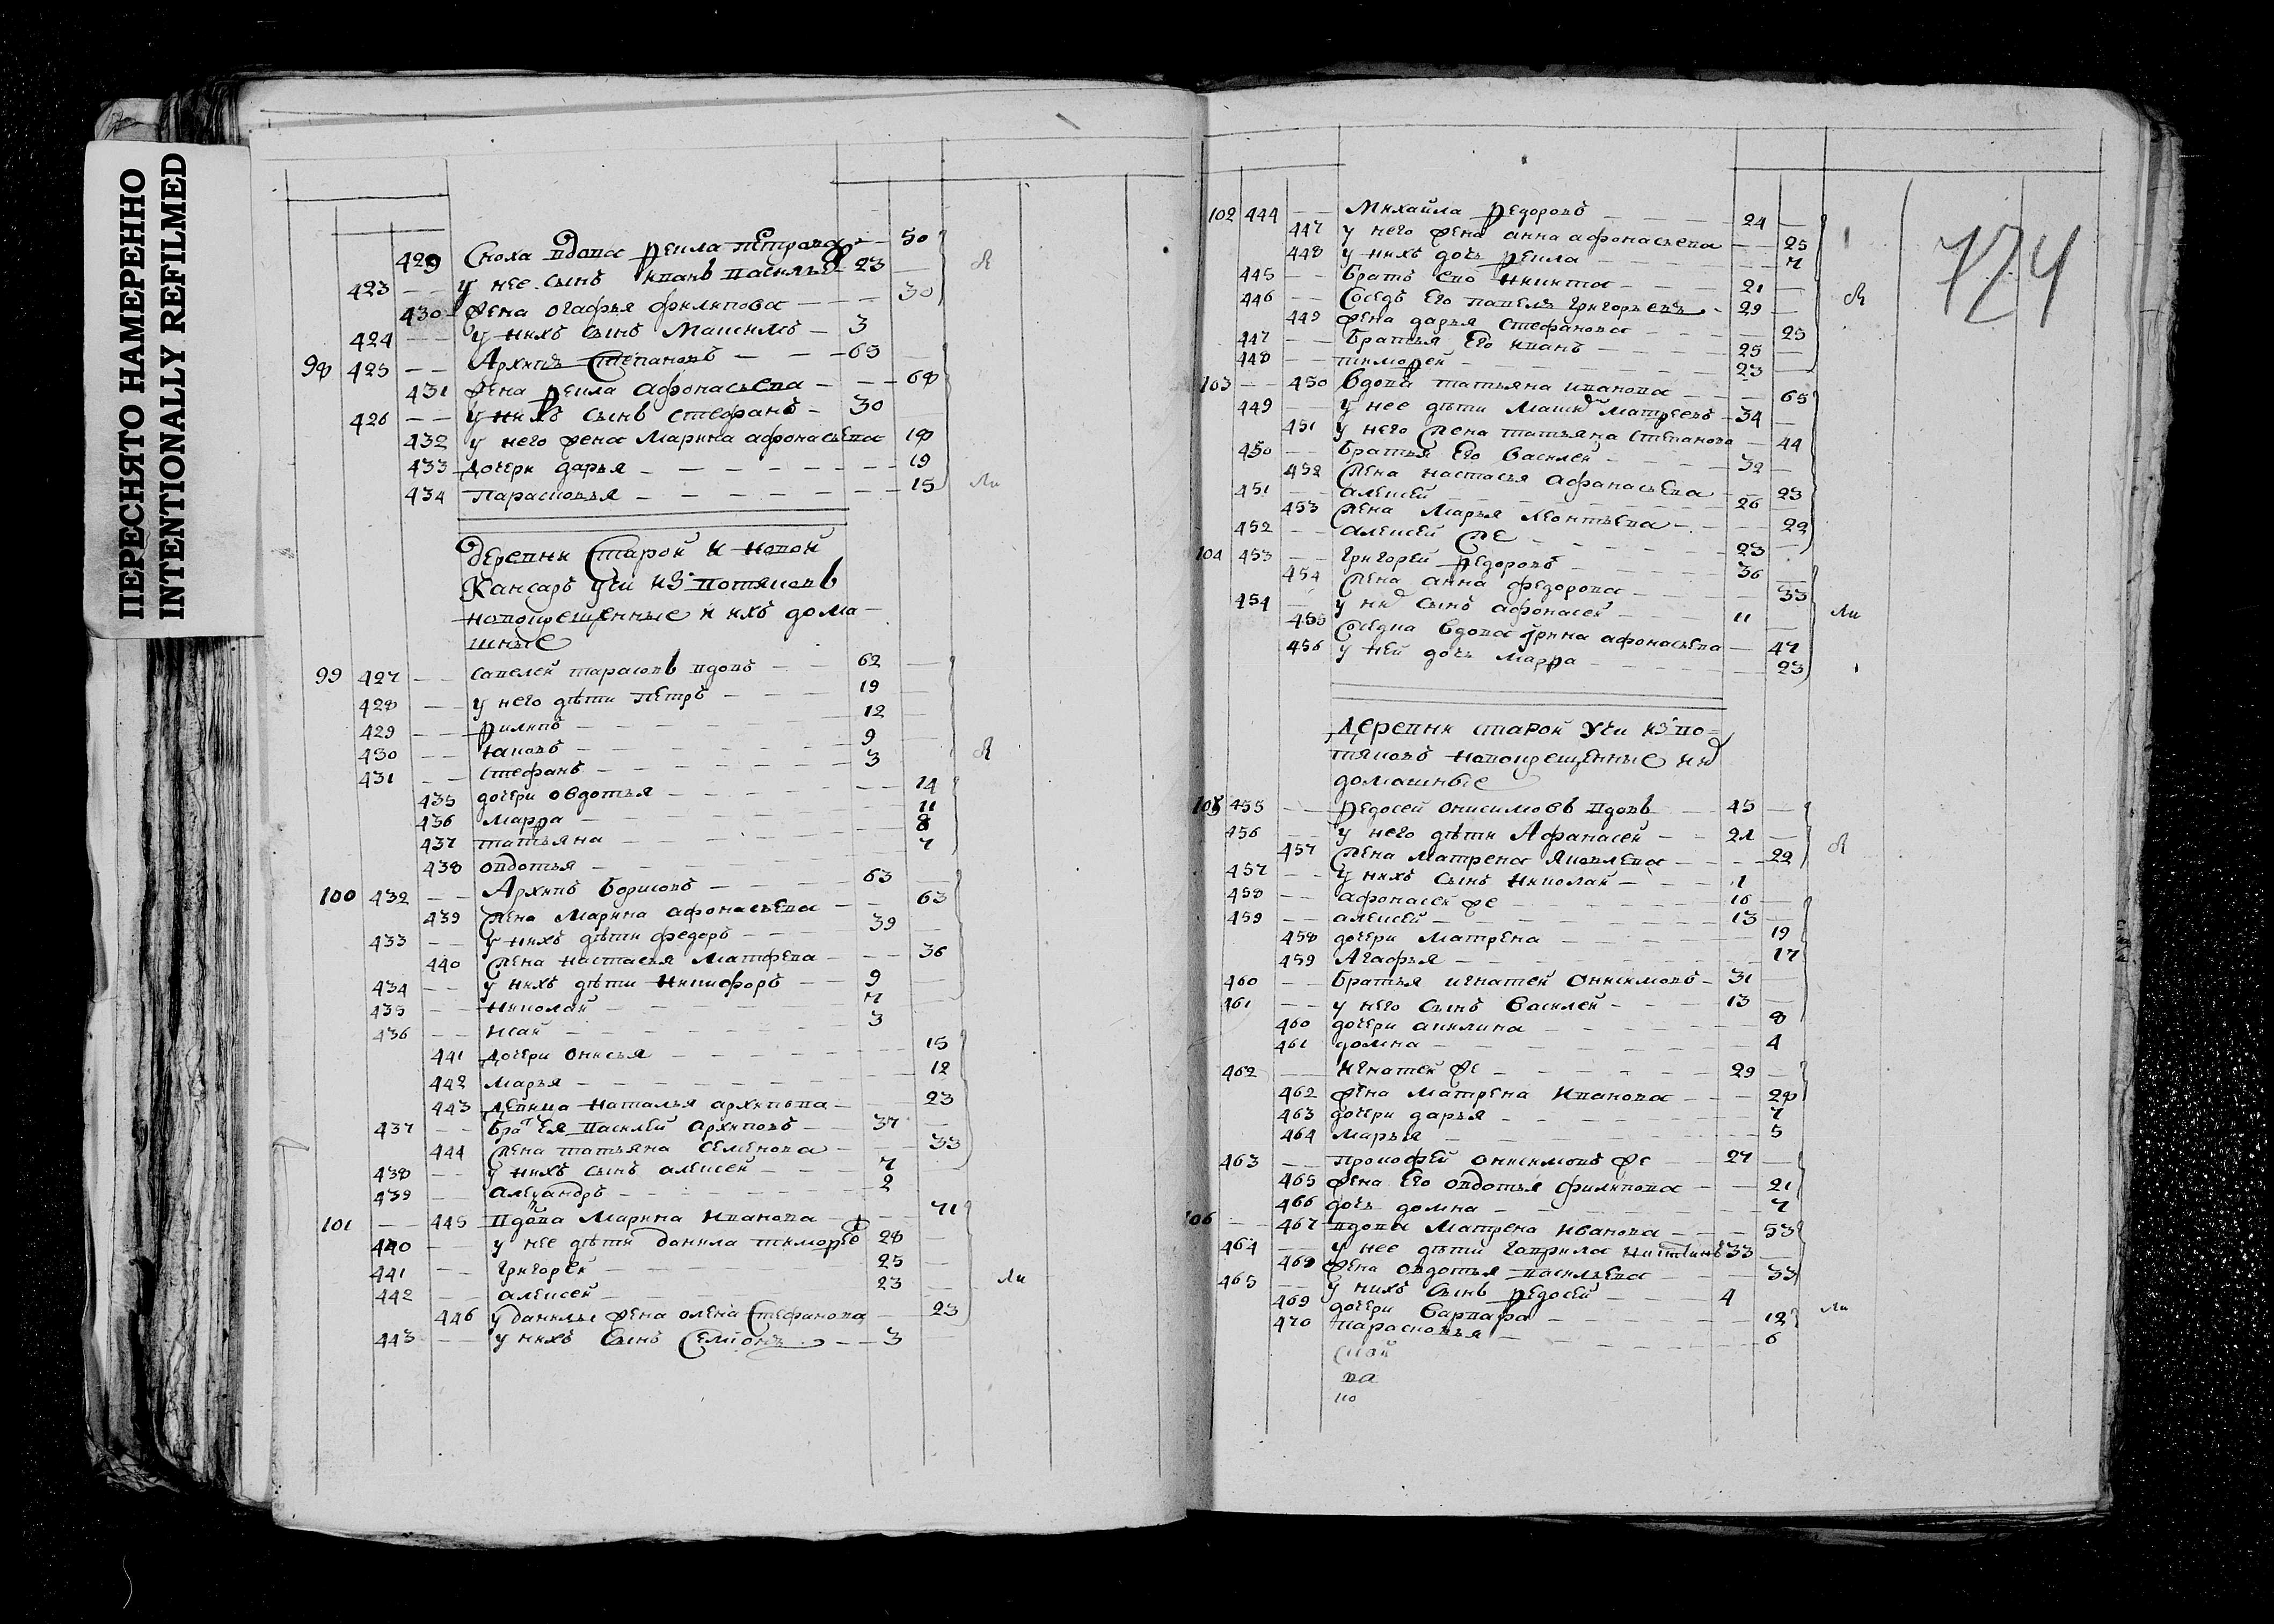 ПЕРЕСНЯТО НАМЕРЕННО
INTENTIONALLY REFILMED
429 Сноха вдова Фекла Петрова 50
423 У нее сынъ Иванъ Василье 23
430 жена огафья филипова 30
424 У нихъ сынъ Машимъ 3
98 425 Архипъ Степановъ 65
431 жена Фекла Афонасьева 68
426 У нихъ сынъ Стефанъ 30
432 у него жена Марина афонасьева 18
433 Дочери дарья 19
434 Парасковья 15
Деревни Старой и новой
Кансаръ учи изъ вотяковъ
новокрещенные и ихъ дома
шные
99 427 Савелей тарасовъ вдовъ 62
428 у него дѣти Петръ 19
429 Филипъ 12
430 Яковъ 9
431 стефанъ 3
435 дочери овдотья 14
436 Марфа 11
437 татьяна 8
438 овдотья 7
100 432 Архипъ Борисовъ 63
439 жена Марина афонасьева 63
433 У нихъ дѣти федоръ 39
440 жена настасья Матфева 36
434 У нихъ дѣти Никифоръ 9
435 Николай 7
436 Исай 3
441 Дочери онисья 15
442 Марья 12
443 Девица Наталья архипова 23
437 братъ Ея Василей Архиповъ 37
444 жена татьяна Семенова 33
438 у нихъ сынъ алексей 7
439 александръ 2
101 445 Вдова Марина Иванова 71
440 у нее дѣти данила тимофѣе 28
441 григорей 25
442 алексей 23
446 у данилы жена олена Стефанова 23
443 у нихъ сынъ Семионъ 3
724
102 444 Михайла Федоровъ 24
447 у него жена анна афонасьева 25
448 у нихъ дочь Фекла 7
445 братъ его никита 21
446 Соседъ Его павелъ григорьевъ 29
449 жена дарья стефанова 25
447 братья Его иванъ 25
448 тимофей 23
103 450 вдова татьяна иванова 65
449 у нее дѣти Машимъ Матфеевъ 34
451 у него жена татьяна степанова 44
450 братья Его василей 32
452 жена настасья Афанасьева 23
451 алексей 26
453 жена Марья леонтьева 22
452 алексей же 23
104 453 григорей Федоровъ 36
454 жена анна федорова 35
454 у них сынъ афонасей 11
455 Соседка вдова ирина афонасьева 47
456 у ней дочь Марфа 23
деревни старой Учи изъ во
тяковъ новокрещенные их
домашные
105 455 Федосей онисимовъ вдовъ 45
456 у него дѣти Афанасей 21
457 жена Матрена Яковлева 22
457 У нихъ сынъ николай 1
458 афонасей же 16
459 алексей 13
458 дочери Матрена 19
459 Агафья 17
460 братья игнатей Онисимовъ 31
461 у него сынъ Василей 13
460 дочери акилина 8
461 домна 4
462 игнатей же 29
462 жена Матрена Иванова 28
463 дочери дарья 7
464 Марья 5
463 прокофей онисимовъ же 27
465 жена Его овдотья филипова 21
466 дочь домна 7
106 467 вдова Матрена иванова 53
464 у нее дѣти гаврила никитинъ 33
468 жена овдотья васильева 33
465 у нихъ сынъ Федосей 4
469 дочери варвара 12
470 парасковья 6